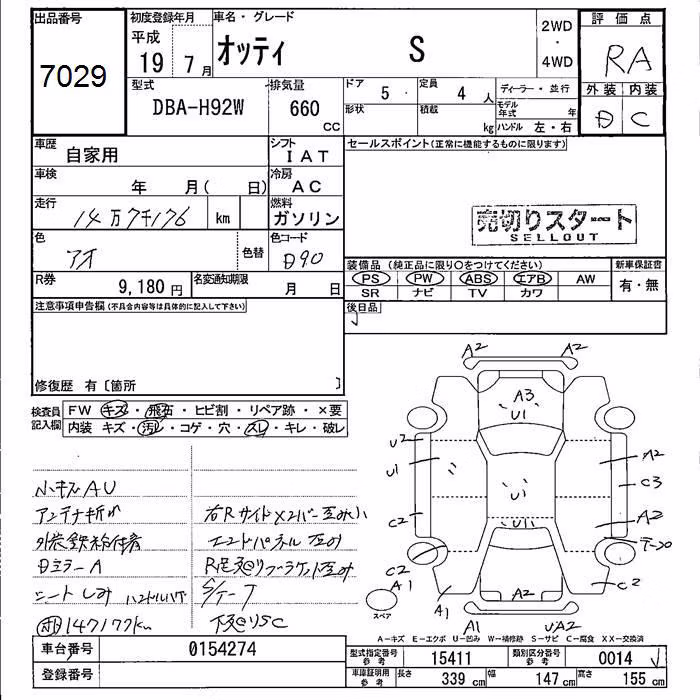 出品番号
7029
初度登録年月
平成
19 7月
車名・グレード
オッティ S
2WD
・
4WD
評価点
RA
型式
DBA-H92W
排気量
660
CC
ドア 5
定員 4人
形状
積載 kg
ディーラー・並行
モデル年式 年
ハンドル 左・右
外装 内装
D C
車歴 自家用
シフト IAT
車検 年 月( 日)
冷房 AC
走行 14万7千176 km
燃料 ガソリン
色 アオ 色替
色コード B90
R券 9,180円
名変通知期限 月 日
セールスポイント(正常に機能するものに限ります)
売切りスタート
SELLOUT
装備品(純正品に限り〇をつけてください)
新車保証書
PS PW ABS エアB AW
有・無
SR ナビ TV カワ
後日品
注意事項申告欄(不具合内容等は具体的に記入して下さい)
修復歴 有〔箇所 〕
検査員記入欄
FW キズ・飛石・ヒビ割・リペア跡・×要
内装 キズ・汚レ・コゲ・穴・スレ・キレ・破レ
小キズAU
アンテナ折れ
ミラーA
シートしみ ハンドルハゲ
147177km
右Rサイドメンバー歪み小
エンドパネル歪み
S/T-T
下廻りSC
A2 A2
A3
U1
U2
U1
C2
U1
U11
A2
C3
A2
テープ
C2
A1
A1
C2
A1
UA2
スペア
A-キズ E-エクボ U-凹み W-補修跡 S-サビ C-腐食 XX-交換済
車台番号 0154274
登録番号
型式指定番号 参考 15411
類別区分番号 参考 0014
車庫証明用 参考
長さ 339 cm
幅 147 cm
高さ 155 cm